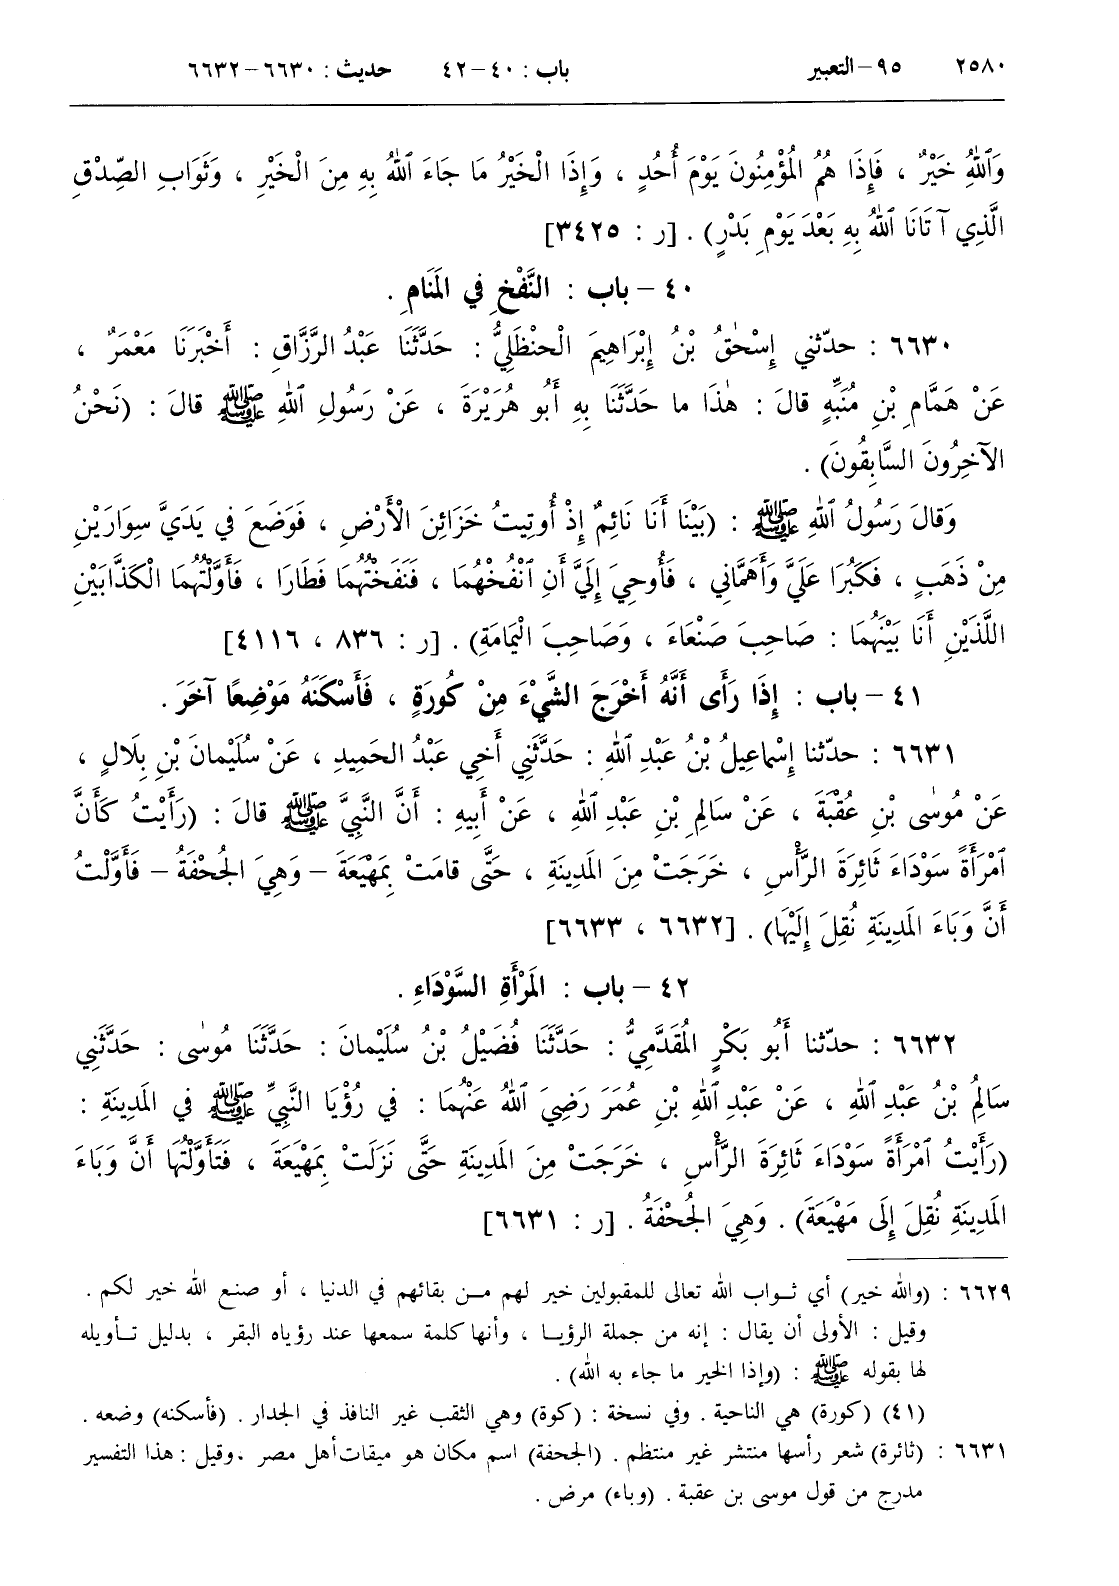 ٢٥٨٠ ٩٥-التعبير باب : ٤٠-٤٢ حديث : ٦٦٣٠-٦٦٣٢
وَٱللهُ خَيْرٌ ، فَإِذَا هُمُ الْمُؤْمِنُونَ يَوْمَ أُحُدٍ ، وَإِذَا الْخَيْرُ مَا جَاءَ ٱللهُ بِهِ مِنَ الْخَيْرِ ، وَثَوَابِ الصِّدْقِ
الَّذِي آتَانَا ٱللهُ بِهِ بَعْدَ يَوْمِ بَدْرٍ) . [ر : ٣٤٢٥]
٤٠ – باب : النَّفْخِ فِي الْمَنَامِ .
٦٦٣٠ : حدّثني إِسْحٰقُ بْنُ إِبْرَاهِيمَ الْحَنْظَلِيُّ : حَدَّثَنَا عَبْدُ الرَّزَّاقِ : أَخْبَرَنَا مَعْمَرٌ ،
عَنْ هَمَّامِ بْنِ مُنَبِّهٍ قالَ : هٰذَا ما حَدَّثَنَا بِهِ أَبُو هُرَيْرَةَ ، عَنْ رَسُولِ ٱللهِ ﷺ قالَ : (نَحْنُ
الآخِرُونَ السَّابِقُونَ) .
وَقالَ رَسُولُ ٱللهِ ﷺ : (بَيْنَا أَنَا نَائِمٌ إِذْ أُوتِيتُ خَزَائِنَ الْأَرْضِ ، فَوَضَعَ فِي يَدَيَّ سِوَارَيْنِ
مِنْ ذَهَبٍ ، فَكَبُرَا عَلَيَّ وَأَهَمَّانِي ، فَأُوحِيَ إِلَيَّ أَنِ ٱنْفُخْهُمَا ، فَنَفَخْتُهُمَا فَطَارَا ، فَأَوَّلْتُهُمَا الْكَذَّابَيْنِ
اللَّذَيْنِ أَنَا بَيْنَهُمَا : صَاحِبَ صَنْعَاءَ ، وَصَاحِبَ الْيَمَامَةِ) . [ر : ٨٣٦ ، ٤١١٦]
٤١ – باب : إِذَا رَأَى أَنَّهُ أَخْرَجَ الشَّيْءَ مِنْ كُورَةٍ ، فَأَسْكَنَهُ مَوْضِعًا آخَرَ .
٦٦٣١ : حدّثنا إِسْمَاعِيلُ بْنُ عَبْدِ ٱللهِ : حَدَّثَنِي أَخِي عَبْدُ الحَمِيدِ ، عَنْ سُلَيْمانَ بْنِ بِلَالٍ ،
عَنْ مُوسٰى بْنِ عُقْبَةَ ، عَنْ سَالِمِ بْنِ عَبْدِ ٱللهِ ، عَنْ أَبِيهِ : أَنَّ النَّبِيَّ ﷺ قالَ : (رَأَيْتُ كَأَنَّ
ٱمْرَأَةً سَوْدَاءَ ثَائِرَةَ الرَّأْسِ ، خَرَجَتْ مِنَ الْمَدِينَةِ ، حَتَّى قامَتْ بِمَهْيَعَةَ – وَهِيَ الْجُحْفَةُ – فَأَوَّلْتُ
أَنَّ وَبَاءَ الْمَدِينَةِ نُقِلَ إِلَيْهَا) . [٦٦٣٢ ، ٦٦٣٣]
٤٢ – باب : الْمَرْأَةِ السَّوْدَاءِ .
٦٦٣٢ : حدّثنا أَبُو بَكْرٍ الْمُقَدَّمِيُّ : حَدَّثَنَا فُضَيْلُ بْنُ سُلَيْمانَ : حَدَّثَنَا مُوسٰى : حَدَّثَنِي
سَالِمُ بْنُ عَبْدِ ٱللهِ ، عَنْ عَبْدِ ٱللهِ بْنِ عُمَرَ رَضِيَ ٱللهُ عَنْهُمَا : فِي رُؤْيَا النَّبِيِّ ﷺ فِي الْمَدِينَةِ :
(رَأَيْتُ ٱمْرَأَةً سَوْدَاءَ ثَائِرَةَ الرَّأْسِ ، خَرَجَتْ مِنَ الْمَدِينَةِ حَتَّى نَزَلَتْ بِمَهْيَعَةَ ، فَتَأَوَّلْتُهَا أَنَّ وَبَاءَ
الْمَدِينَةِ نُقِلَ إِلَى مَهْيَعَةَ) . وَهِيَ الْجُحْفَةُ . [ر : ٦٦٣١]
٦٦٢٩ : (والله خير) أي ثـواب الله تعالى للمقبولين خير لهم مـن بقائهم في الدنيا ، أو صنع الله خير لكم .
وقيل : الأولى أن يقال : إنه من جملة الرؤيـا ، وأنها كلمة سمعها عند رؤياه البقر ، بدليل تـأويله
لها بقوله ﷺ : (وإذا الخير ما جاء به الله) .
(٤١) (كورة) هي الناحية . وفي نسخة : (كوة) وهي الثقب غير النافذ في الجدار . (فأسكنه) وضعه .
٦٦٣١ : (ثائرة) شعر رأسها منتشر غير منتظم . (الجحفة) اسم مكان هو ميقات أهل مصر . وقيل : هذا التفسير
مدرج من قول موسى بن عقبة . (وباء) مرض .